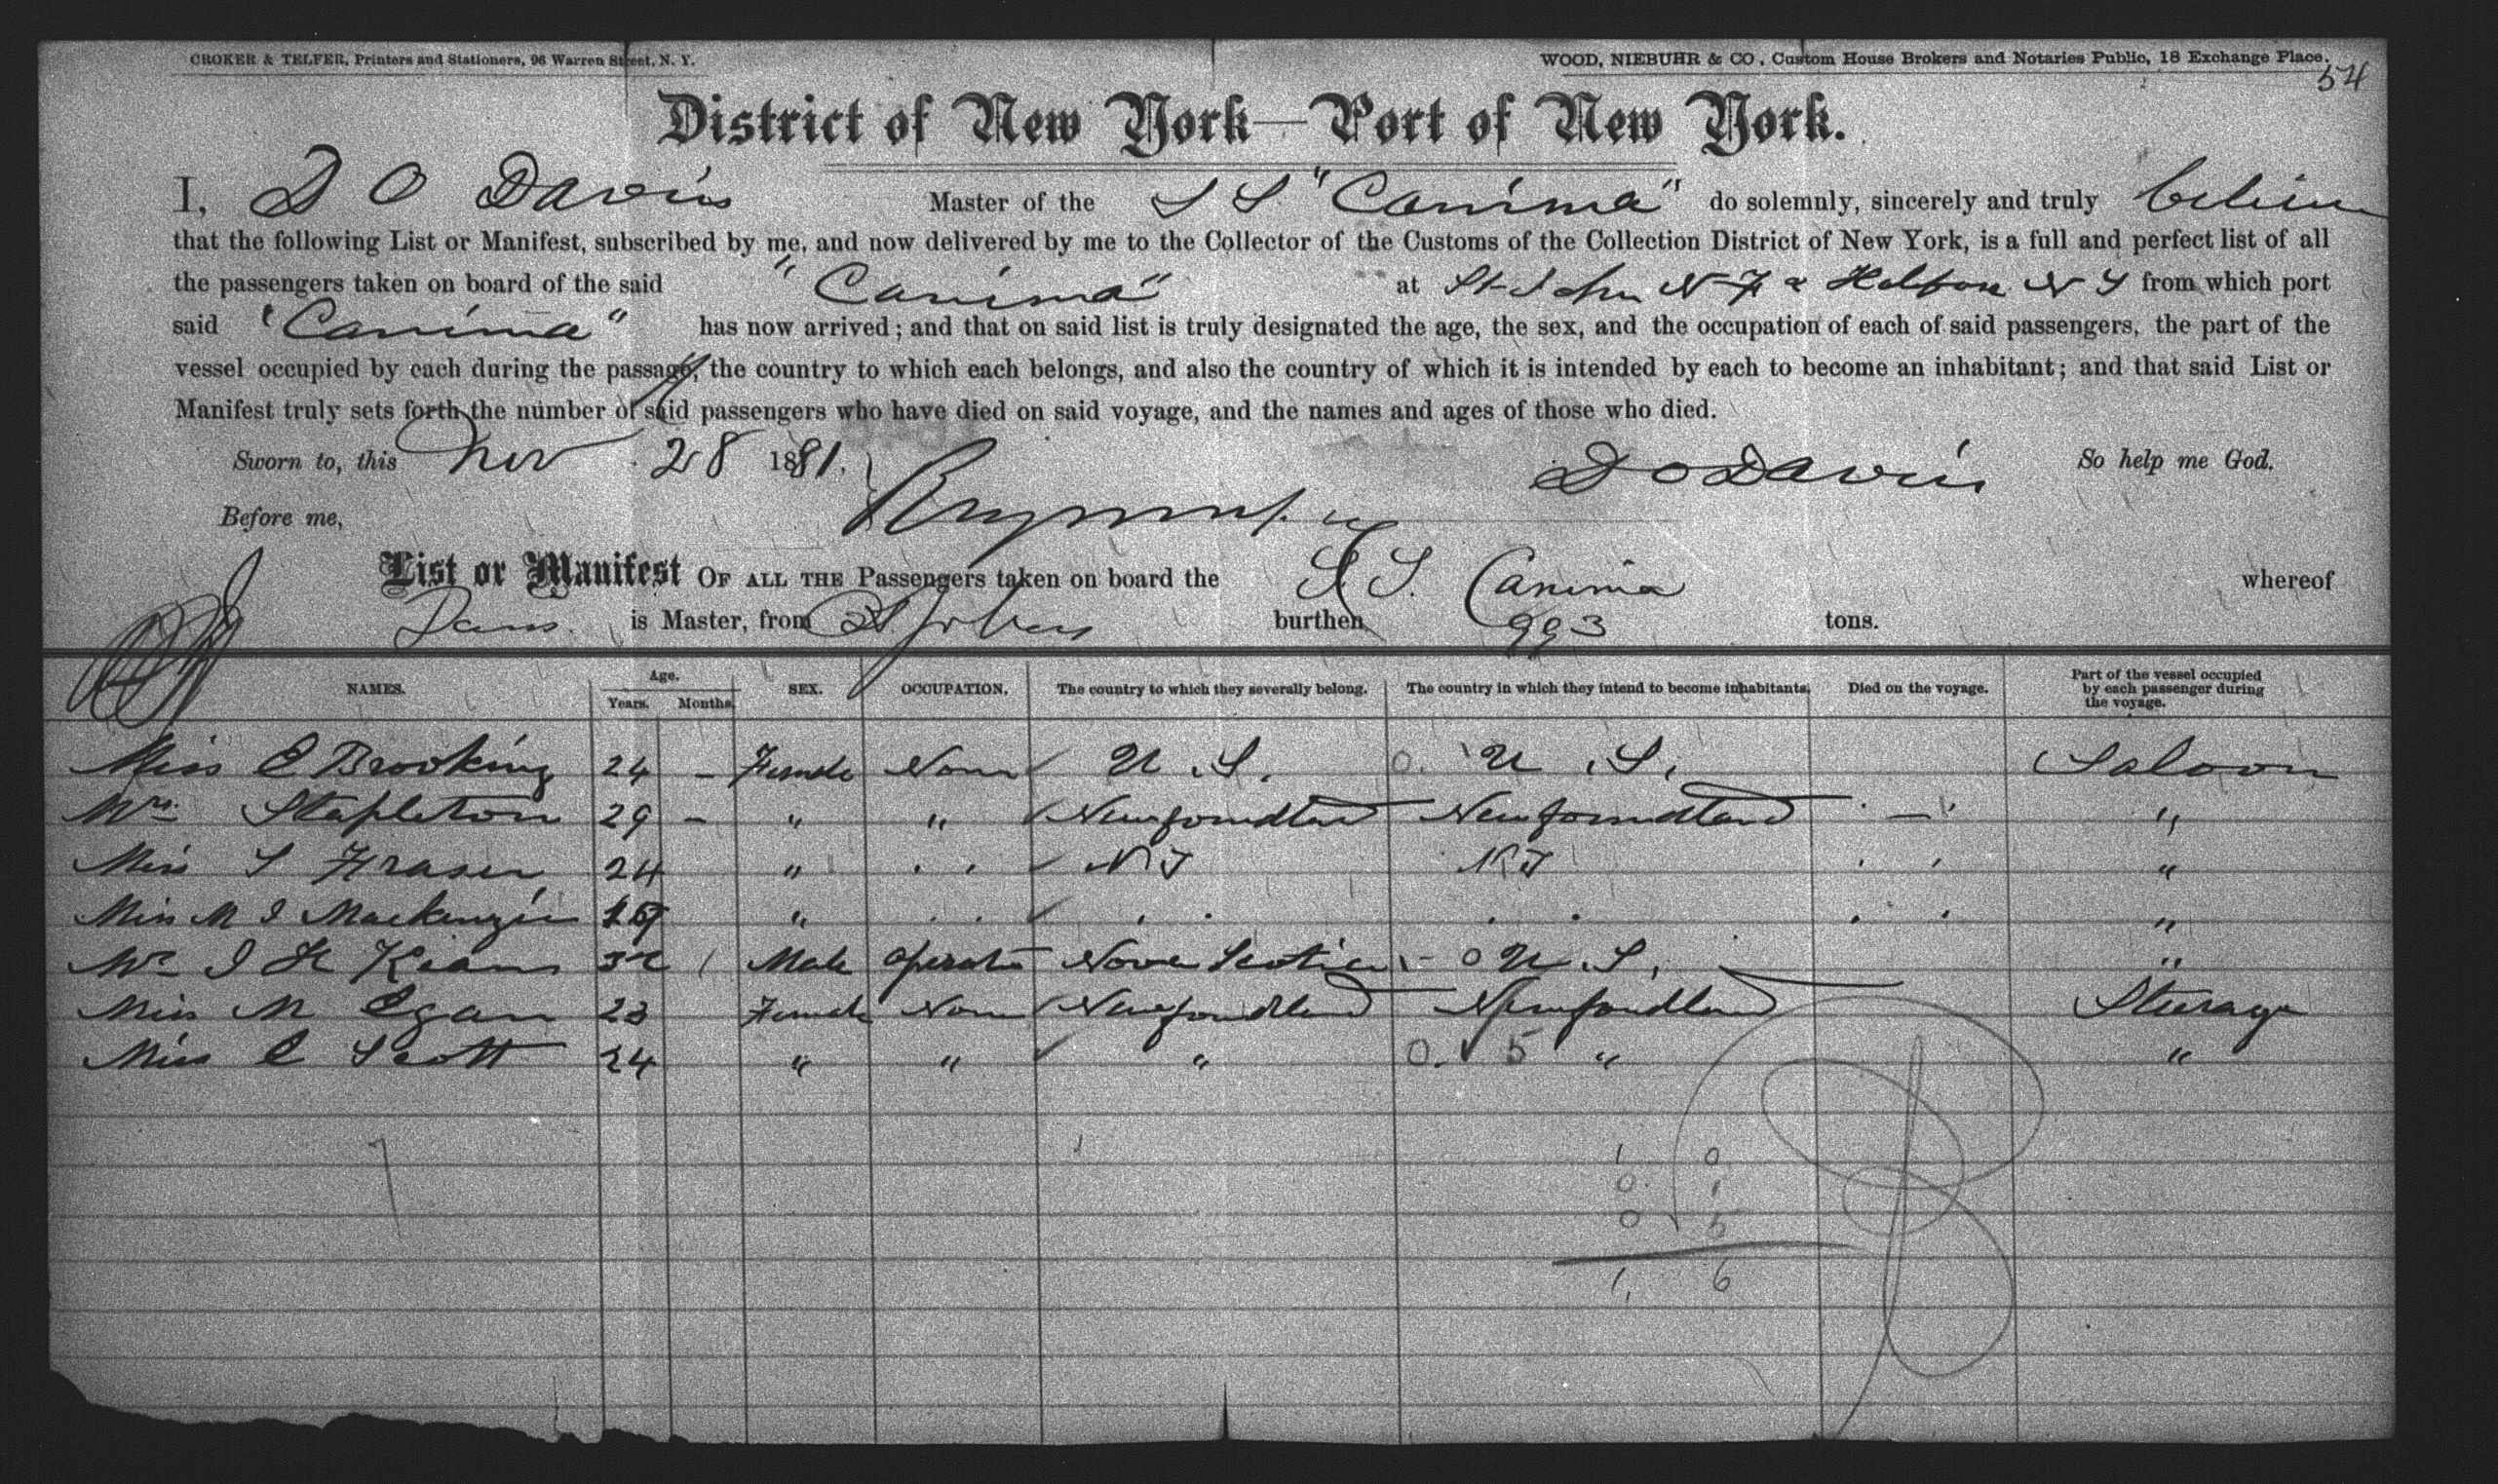 CROKER & TELFER, Printers and Stationers, 96 Warren Street, N. Y.
WOOD, NIEBUHR & CO., Custom House Brokers and Notaries Public, 18 Exchange Place.
54
District of New York—Port of New York.
I, D O Davis Master of the S S "Canima" do solemnly, sincerely and truly
that the following List or Manifest, subscribed by me, and now delivered by me to the Collector of the Customs of the Collection District of New York, is a full and perfect list of all
the passengers taken on board of the said "Canima" at St John N F & Halifax N S from which port
said "Canima" has now arrived; and that on said list is truly designated the age, the sex, and the occupation of each of said passengers, the part of the
vessel occupied by each during the passage, the country to which each belongs, and also the country of which it is intended by each to become an inhabitant; and that said List or
Manifest truly sets forth the number of said passengers who have died on said voyage, and the names and ages of those who died.
Sworn to, this Nov 28 1881. D O Davis So help me God.
Before me,
List or Manifest OF ALL THE Passengers taken on board the S S. Canima whereof
Davis is Master, from St Johns burthen 993 tons.
NAMES. Age. Years. Months. SEX. OCCUPATION. The country to which they severally belong. The country in which they intend to become inhabitants. Died on the voyage. Part of the vessel occupied by each passenger during the voyage.
Miss E Brooking 24 – Female None U.S. 0. U.S. Saloon
Mrs Stapleton 29 – " " Newfoundland Newfoundland — "
Miss S Fraser 24 " " N F N F "
Miss M J Mackenzie " "
Mr J H 32 Male Operator Nova Scotia 0 U.S. "
Miss M Egan 23 Female None Newfoundland Newfoundland Steerage
Miss C Scott 24 " " " 0. 5 " "
7 1 0
0. 1
0 5
1, 6